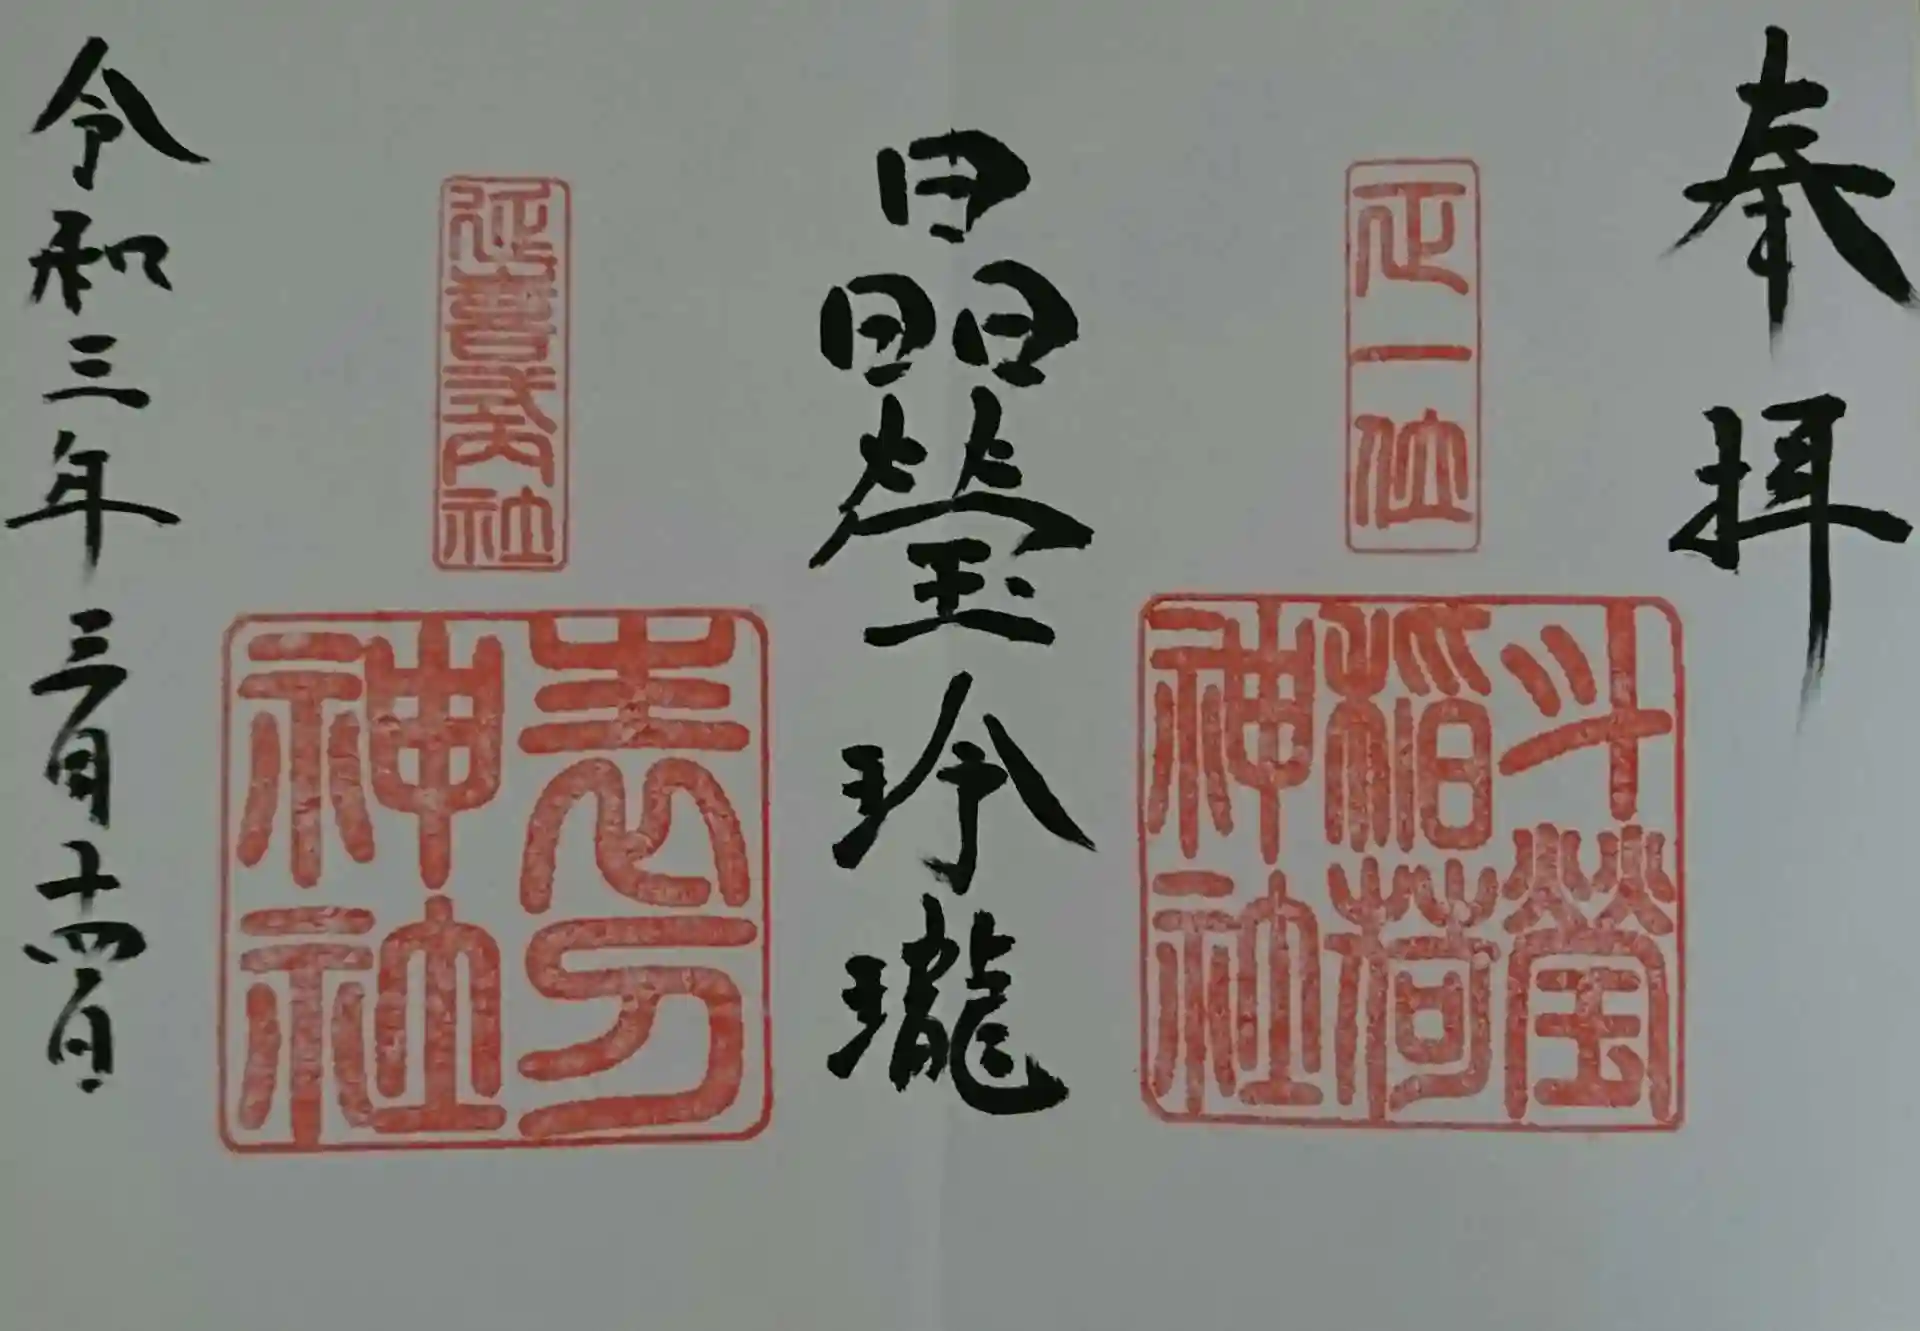 奉拝
正一位
斗瑩稲荷神社
晶瑩玲瓏
延喜式内社
表刀神社
令和三年三月十四日